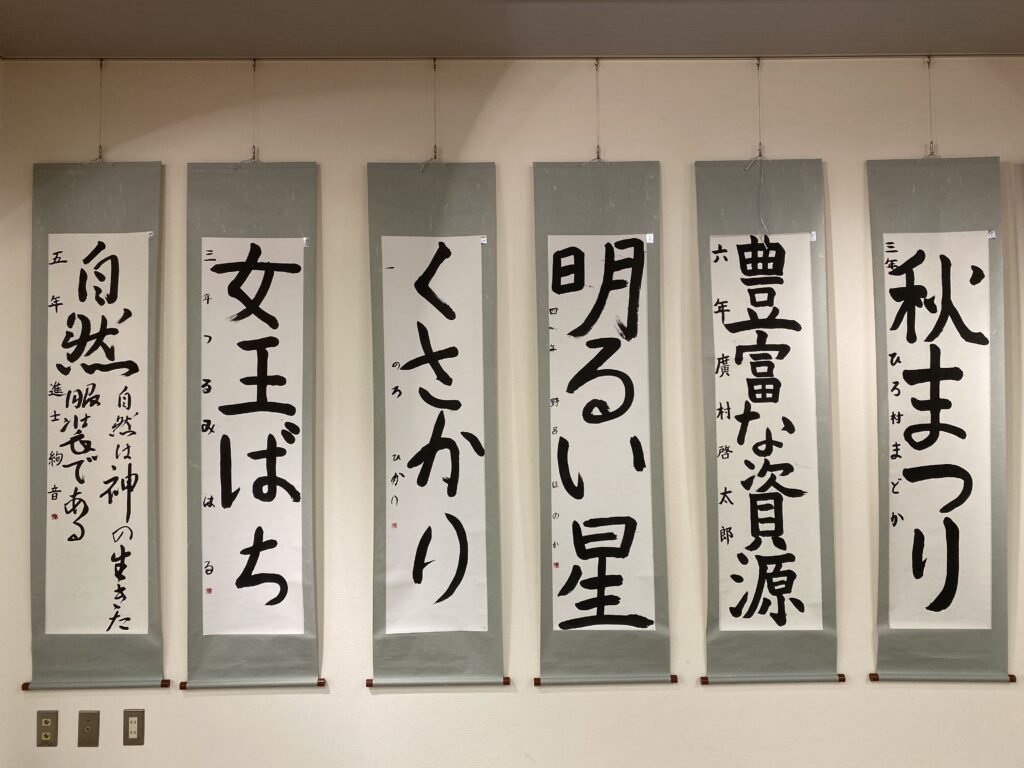 秋まつり
三年 ひろ村まどか
豊富な資源
六年 廣村啓太郎
明るい星
四年 野呂ほのか
くさかり
一 のろ ひかり
女王ばち
三年 つるみ はる
自然
自然は神の生きた
服装である
五年 進士絢音